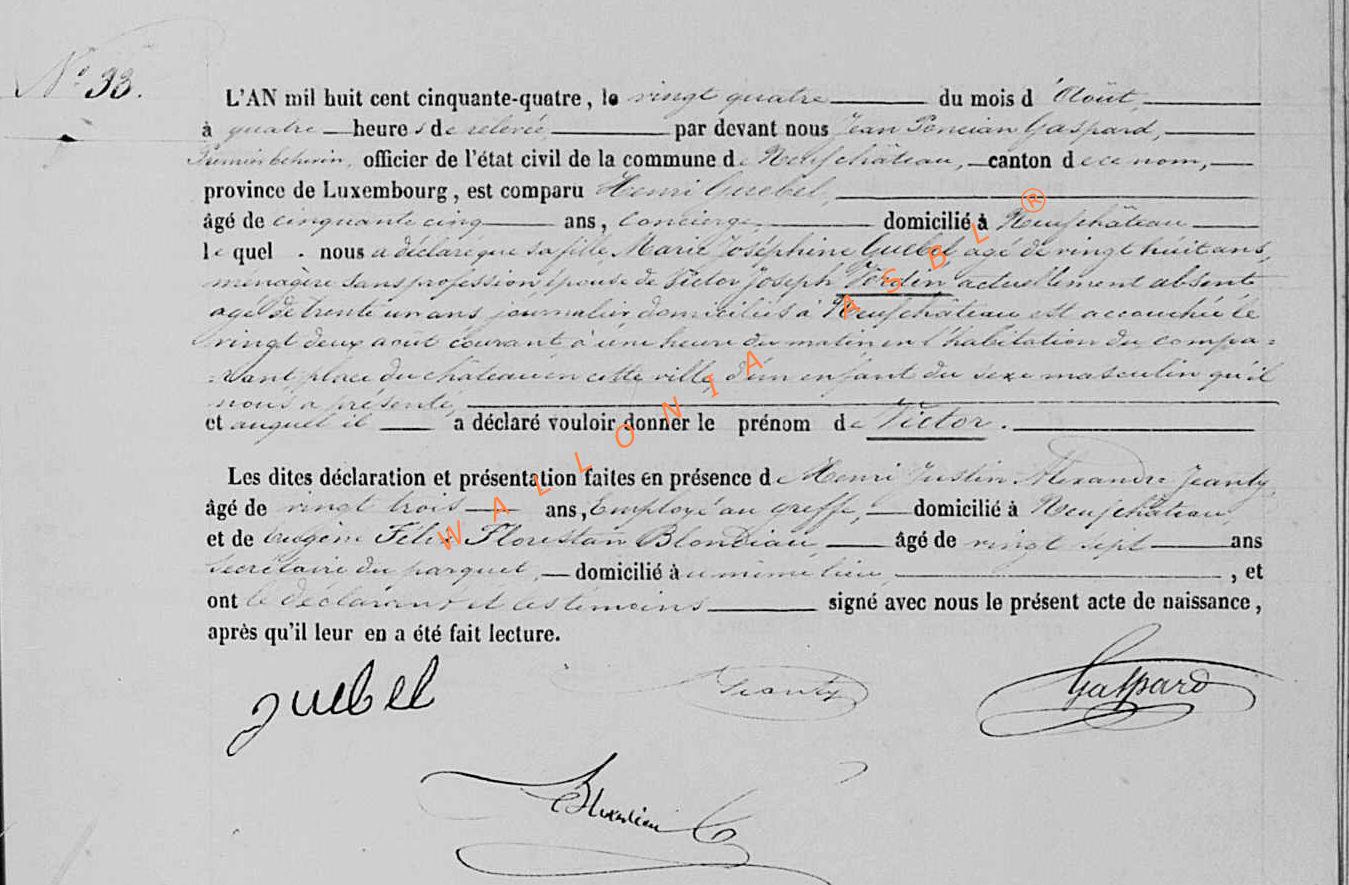 N° 93.
L'AN mil huit cent cinquante-quatre, le vingt quatre du mois d'Août,
à quatre heures de relevée par devant nous Jean Poncian Gaspard,
Premier Echevin, officier de l'état civil de la commune de Neufchâteau, canton de ce nom,
province de Luxembourg, est comparu Henri Guebel,
âgé de cinquante cinq ans, Concierge, domicilié à Neufchâteau
le quel . nous a déclaré que sa fille, Marie Joséphine Guebel agé de vingt huit ans,
ménagère sans profession, épouse de Victor Joseph actuellement absent
agé de trente un ans journalier domiciliés à Neufchâteau est accouchée le
vingt deux août courant à une heure du matin en l'habitation du compa=
=rant place du château en cette ville, d'un enfant du sexe masculin qu'il
nous a présenté,
et auquel il a déclaré vouloir donner le prénom de Victor.
Les dites déclaration et présentation faites en présence de Henri Justin Alexandre Jeanty
âgé de vingt trois ans, Employé au greffe, domicilié à Neufchâteau,
et de Eugène Félix Floristan Blondiau, âgé de vingt sept ans
secrétaire du parquet, domicilié au même lieu, , et
ont le déclarant et les témoins signé avec nous le présent acte de naissance,
après qu'il leur en a été fait lecture.
guebel Jeanty Gaspard
Blondiau
WALLONIA ASBL ®